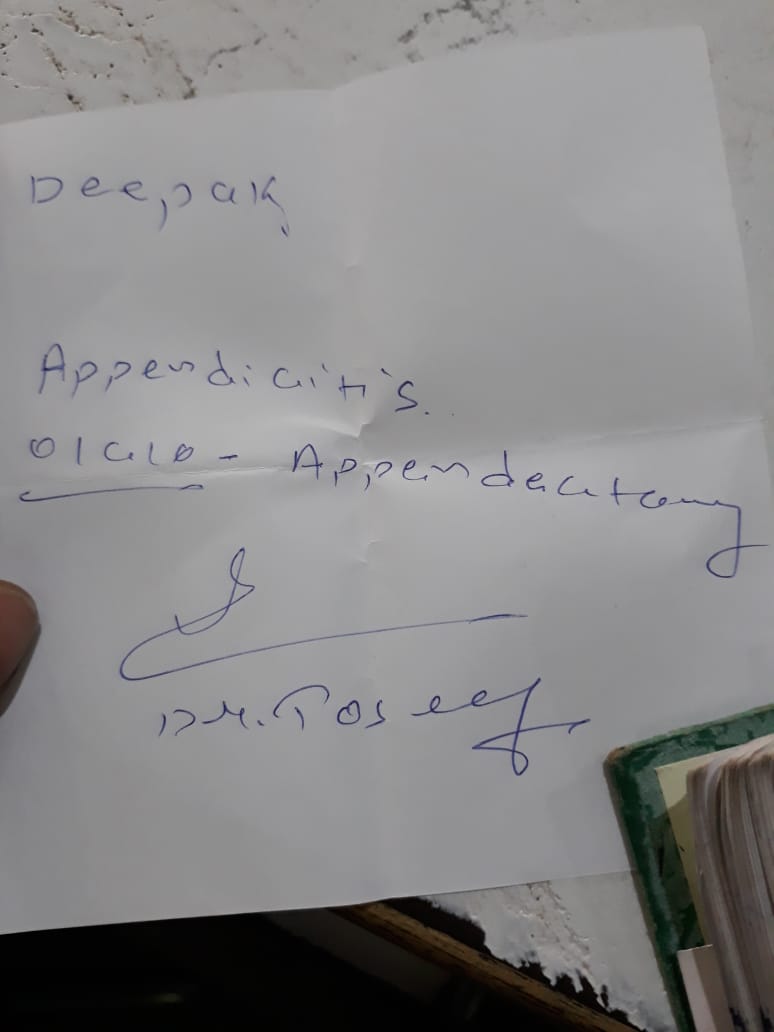 Deepak
Appendicitis.
- Appendectomy
Dr. Toseef